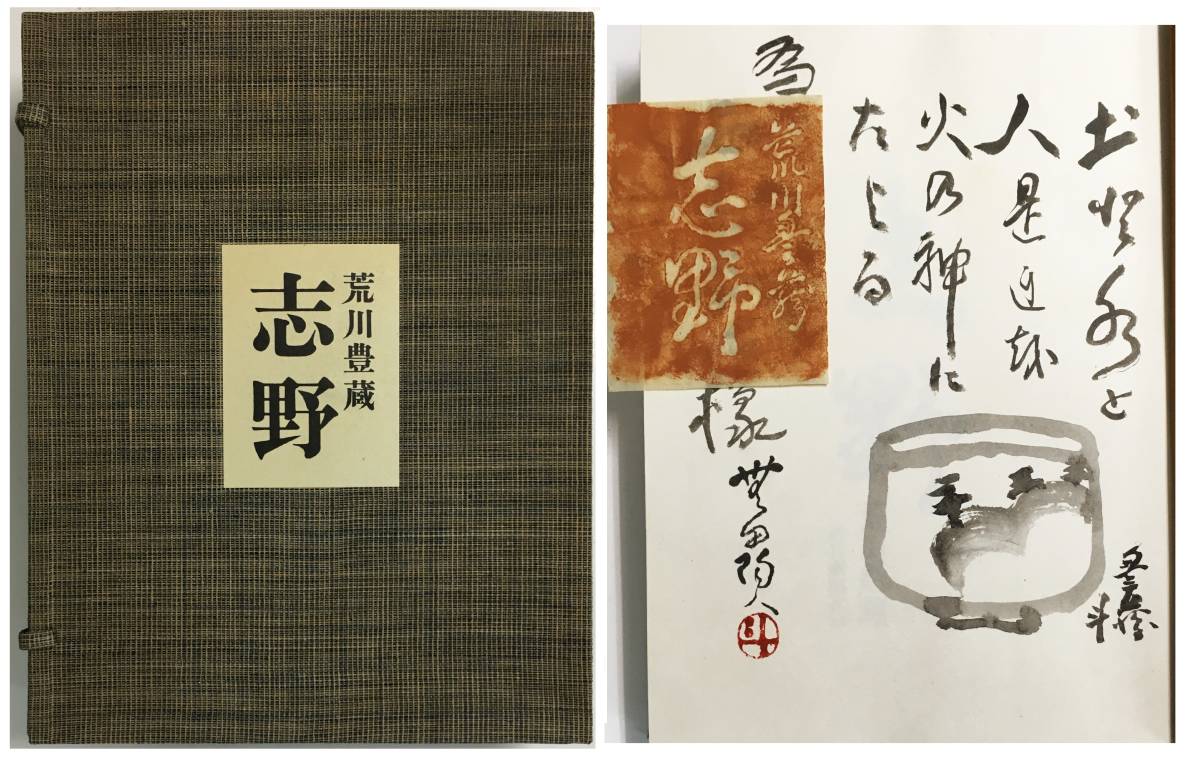 荒川豊蔵
志野
土登水と
人是
火乃神に
たよる
豊蔵
斗
荒川豊蔵
志野
為
様
無田陶人
斗